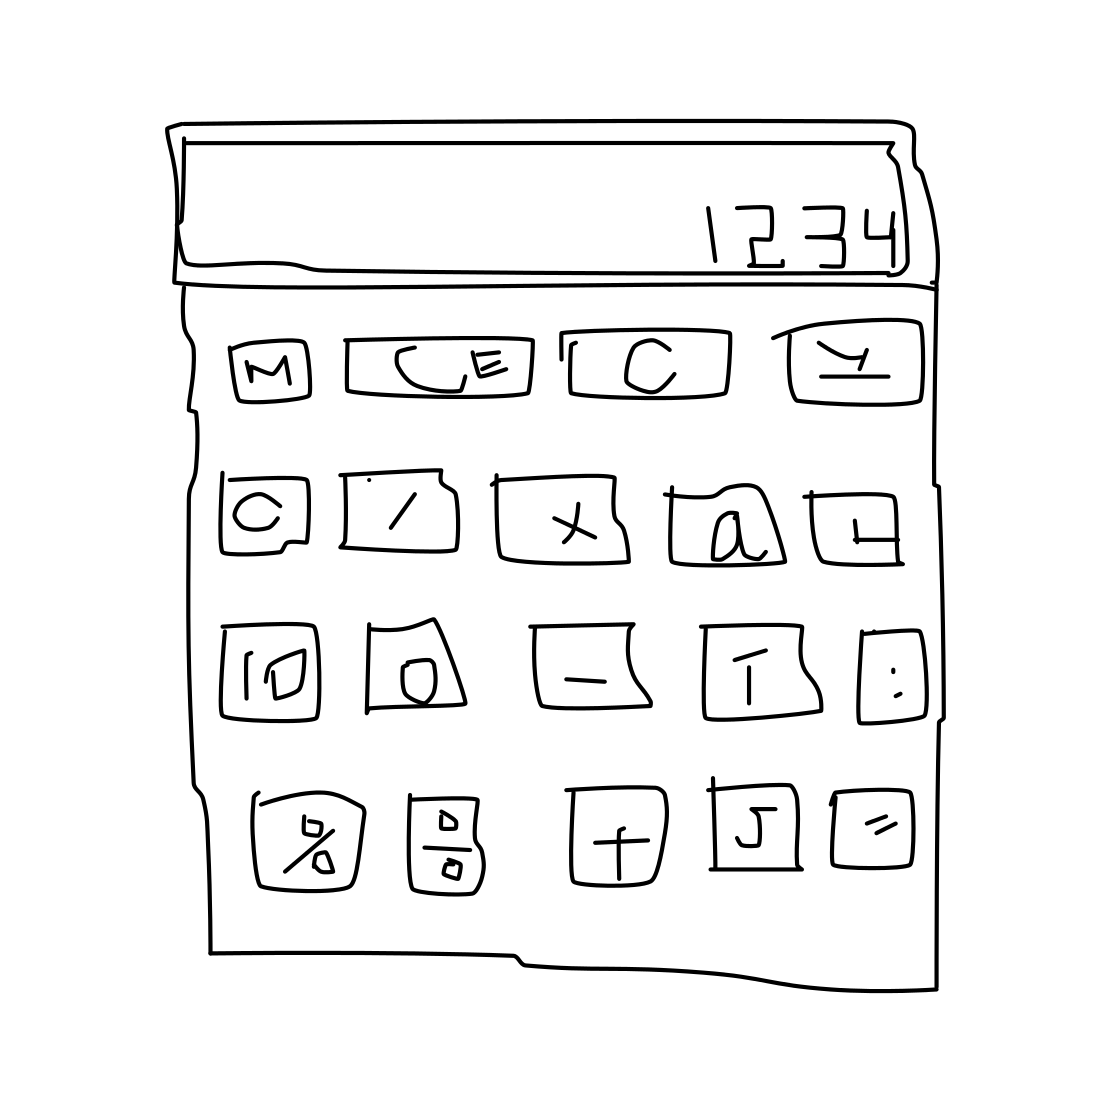 1234
M CE C
C / x a
10 0 - T :
% ÷ + =